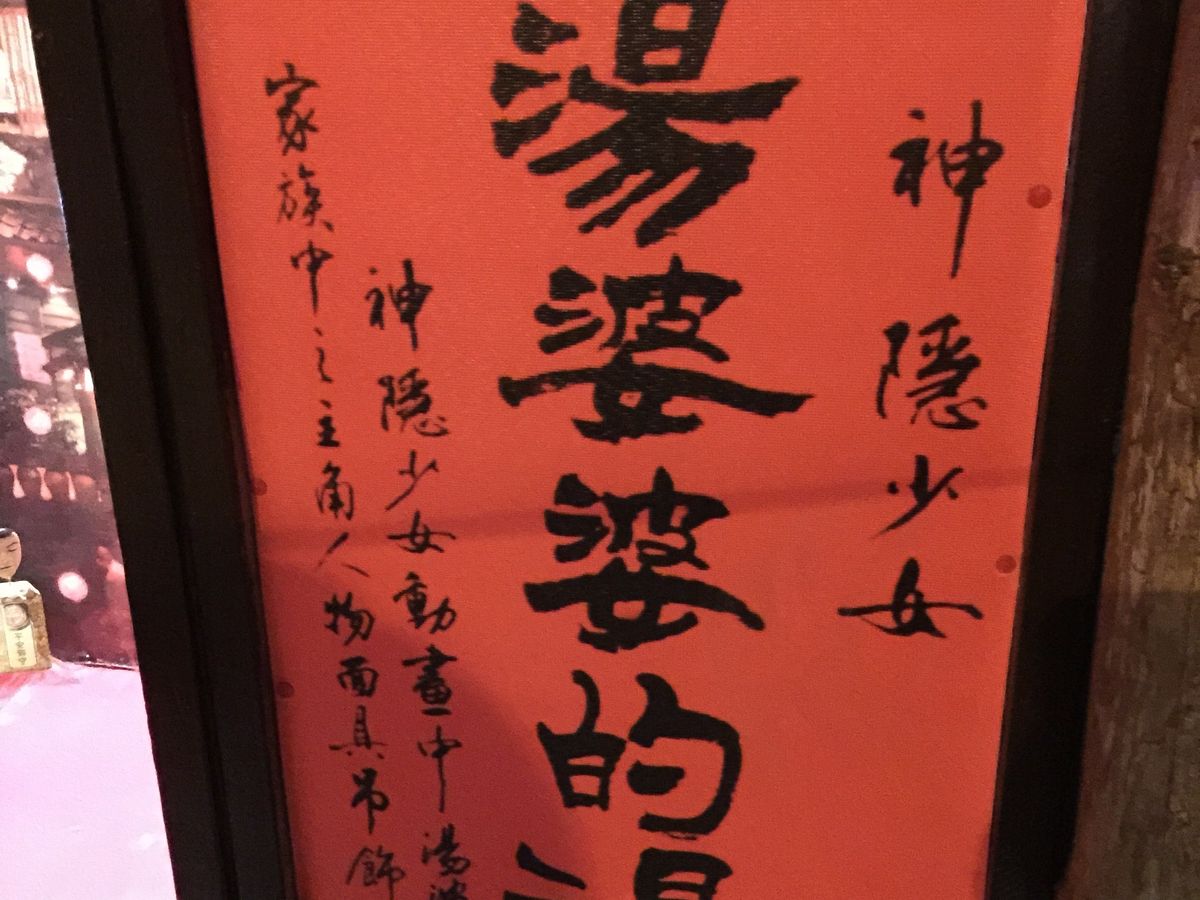 神隱少女
湯婆婆的湯
神隱少女動畫中湯婆
家族中之主角人物面具吊飾